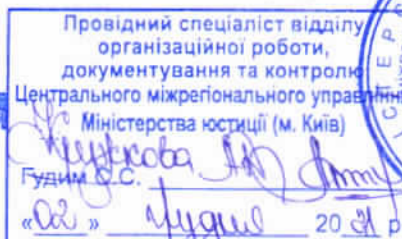 Провідний спеціаліст відділу
організаційної роботи,
документування та контролю
Центрального міжрегіонального управління
Міністерства юстиції (м. Київ)
Гудим С.С.
«02» грудня 2021 р